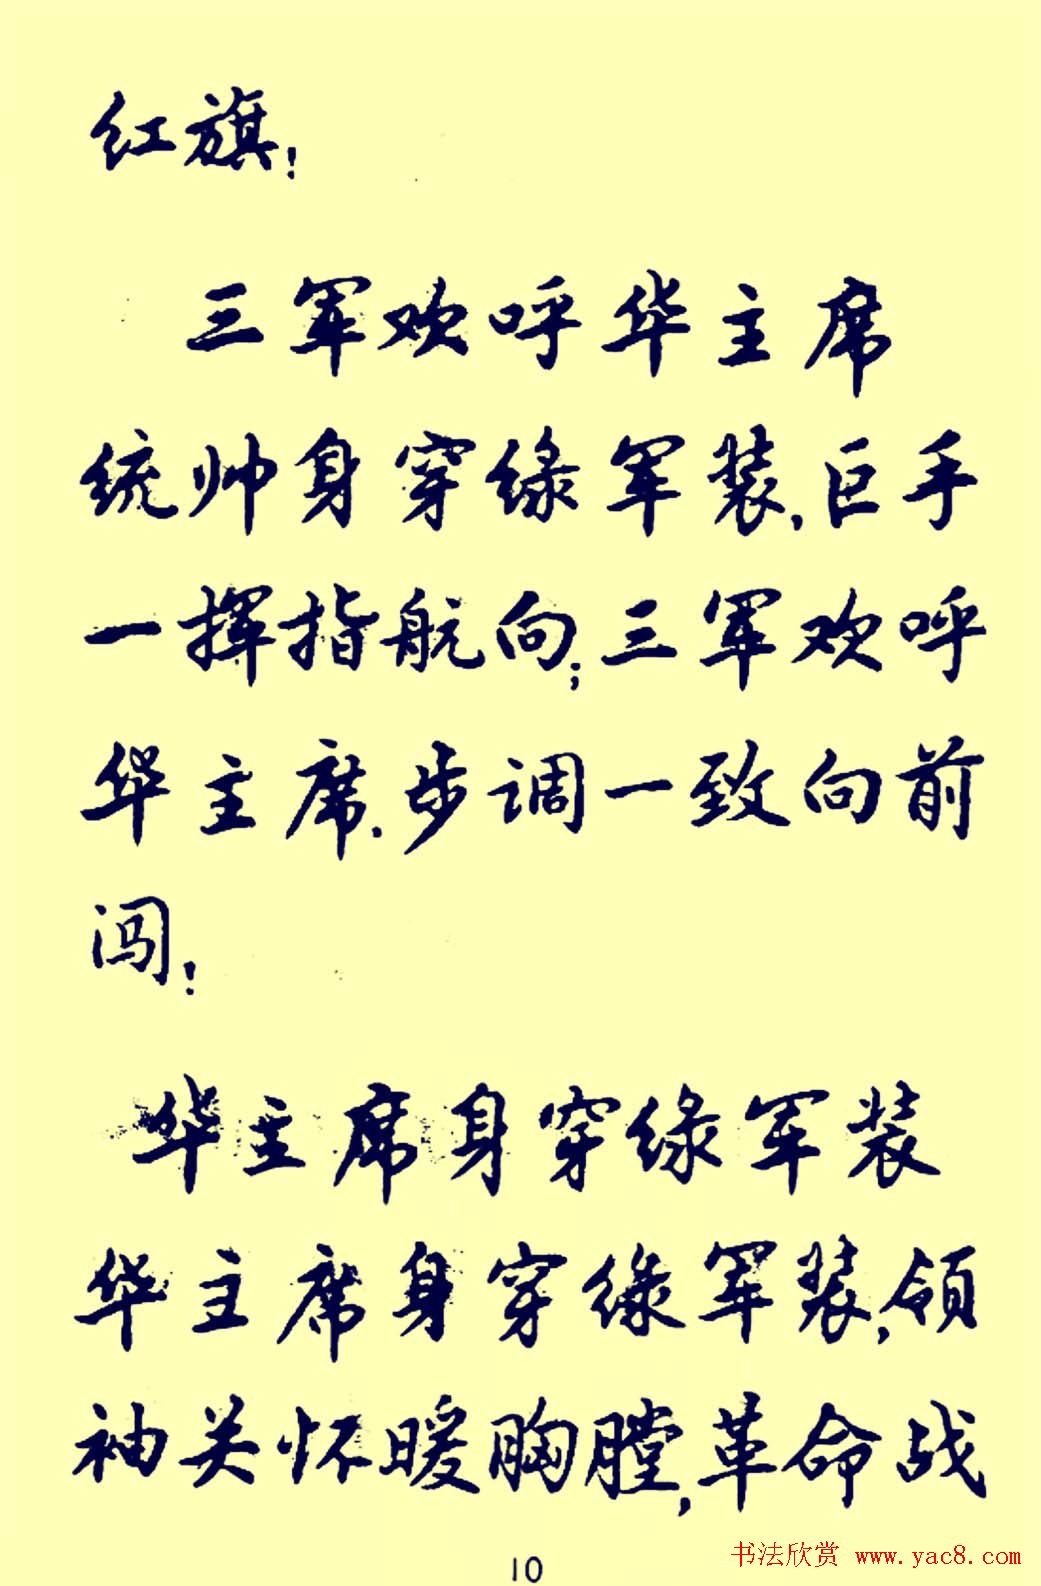 红旗！
三军欢呼华主席
统帅身穿绿军装，巨手
一挥指航向；三军欢呼
华主席，步调一致向前
闯！
华主席身穿绿军装
华主席身穿绿军装，领
袖关怀暖胸膛，革命战
10
书法欣赏 www.yac8.com